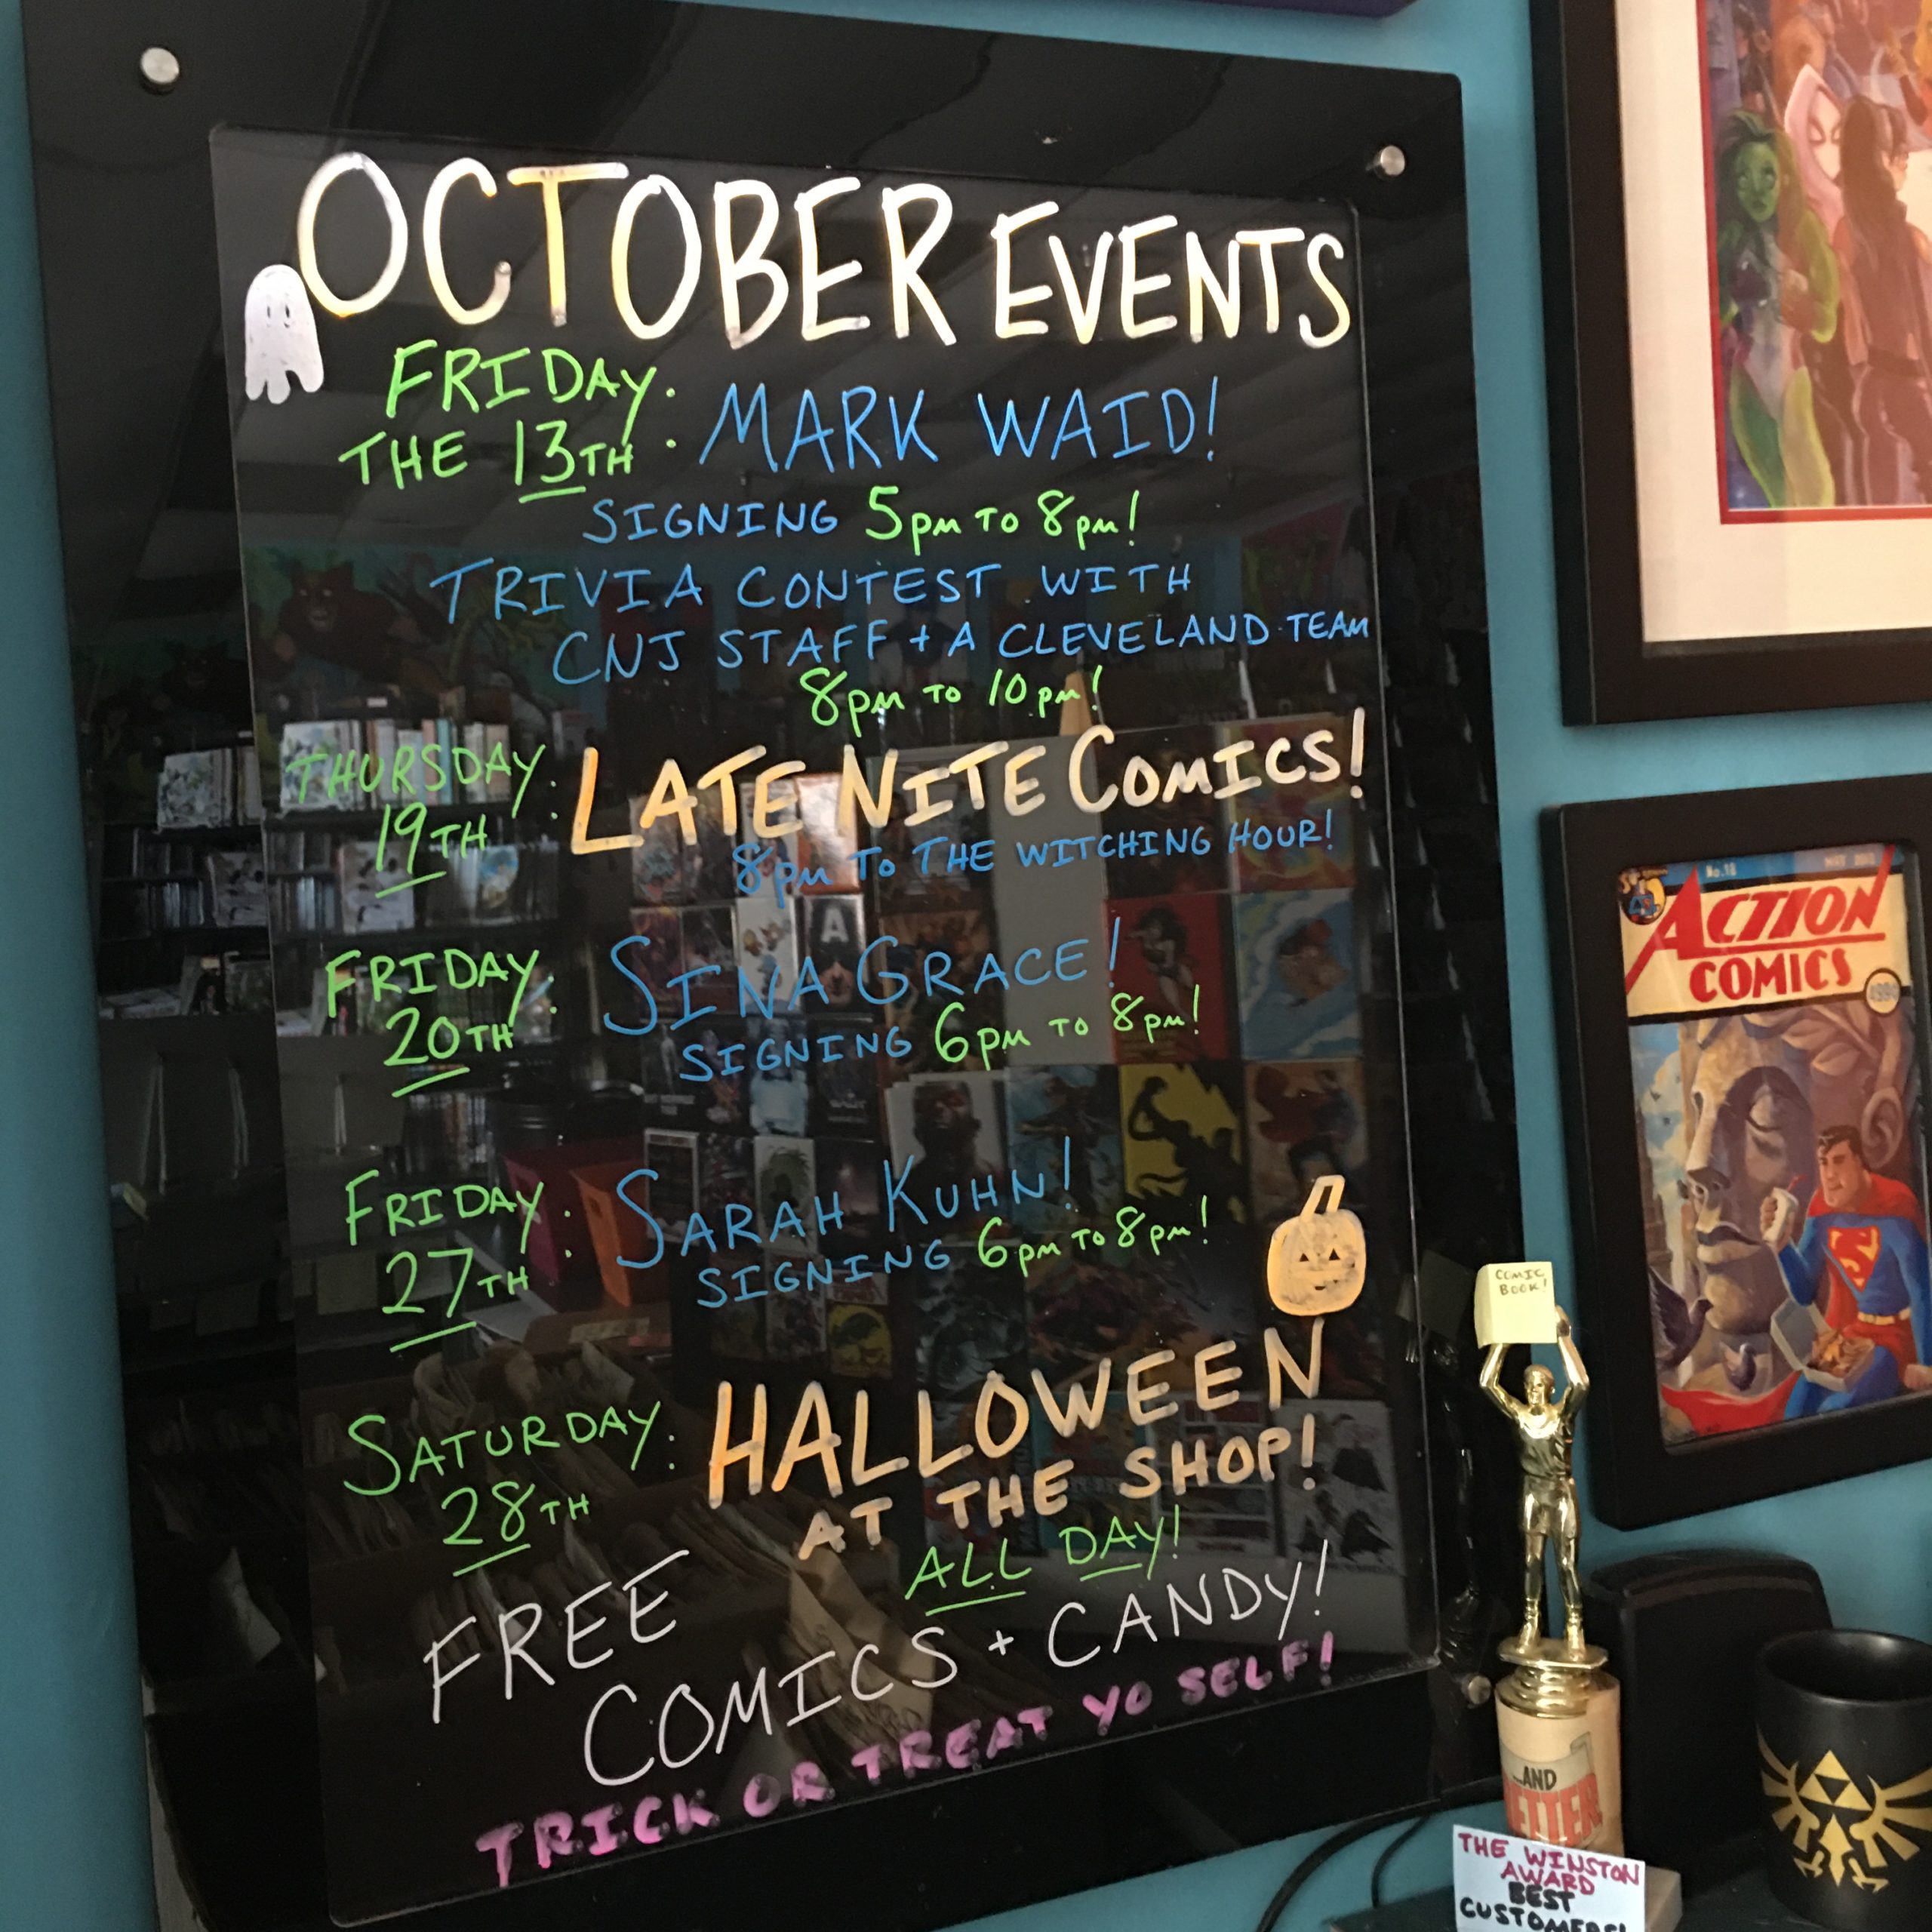 OCTOBER EVENTS
FRIDAY:
THE 13TH
MARK WAID!
SIGNING 5pm TO 8pm!
TRIVIA CONTEST WITH
CNJ STAFF + A CLEVELAND TEAM
8pm TO 10pm!
THURSDAY:
19TH
LATE NITE COMICS!
8pm TO THE WITCHING HOUR!
FRIDAY:
20TH
SINA GRACE!
SIGNING 6pm TO 8pm!
FRIDAY:
27TH
SARAH KUHN!
SIGNING 6pm TO 8pm!
SATURDAY:
28TH
HALLOWEEN
AT THE SHOP!
ALL DAY!
FREE
COMICS + CANDY!
TRICK OR TREAT YO SELF!
No.18
ACTION
COMICS
COMIC
BOOK!
AND
THE WINSTON
AWARD
BEST
CUSTOMERS!